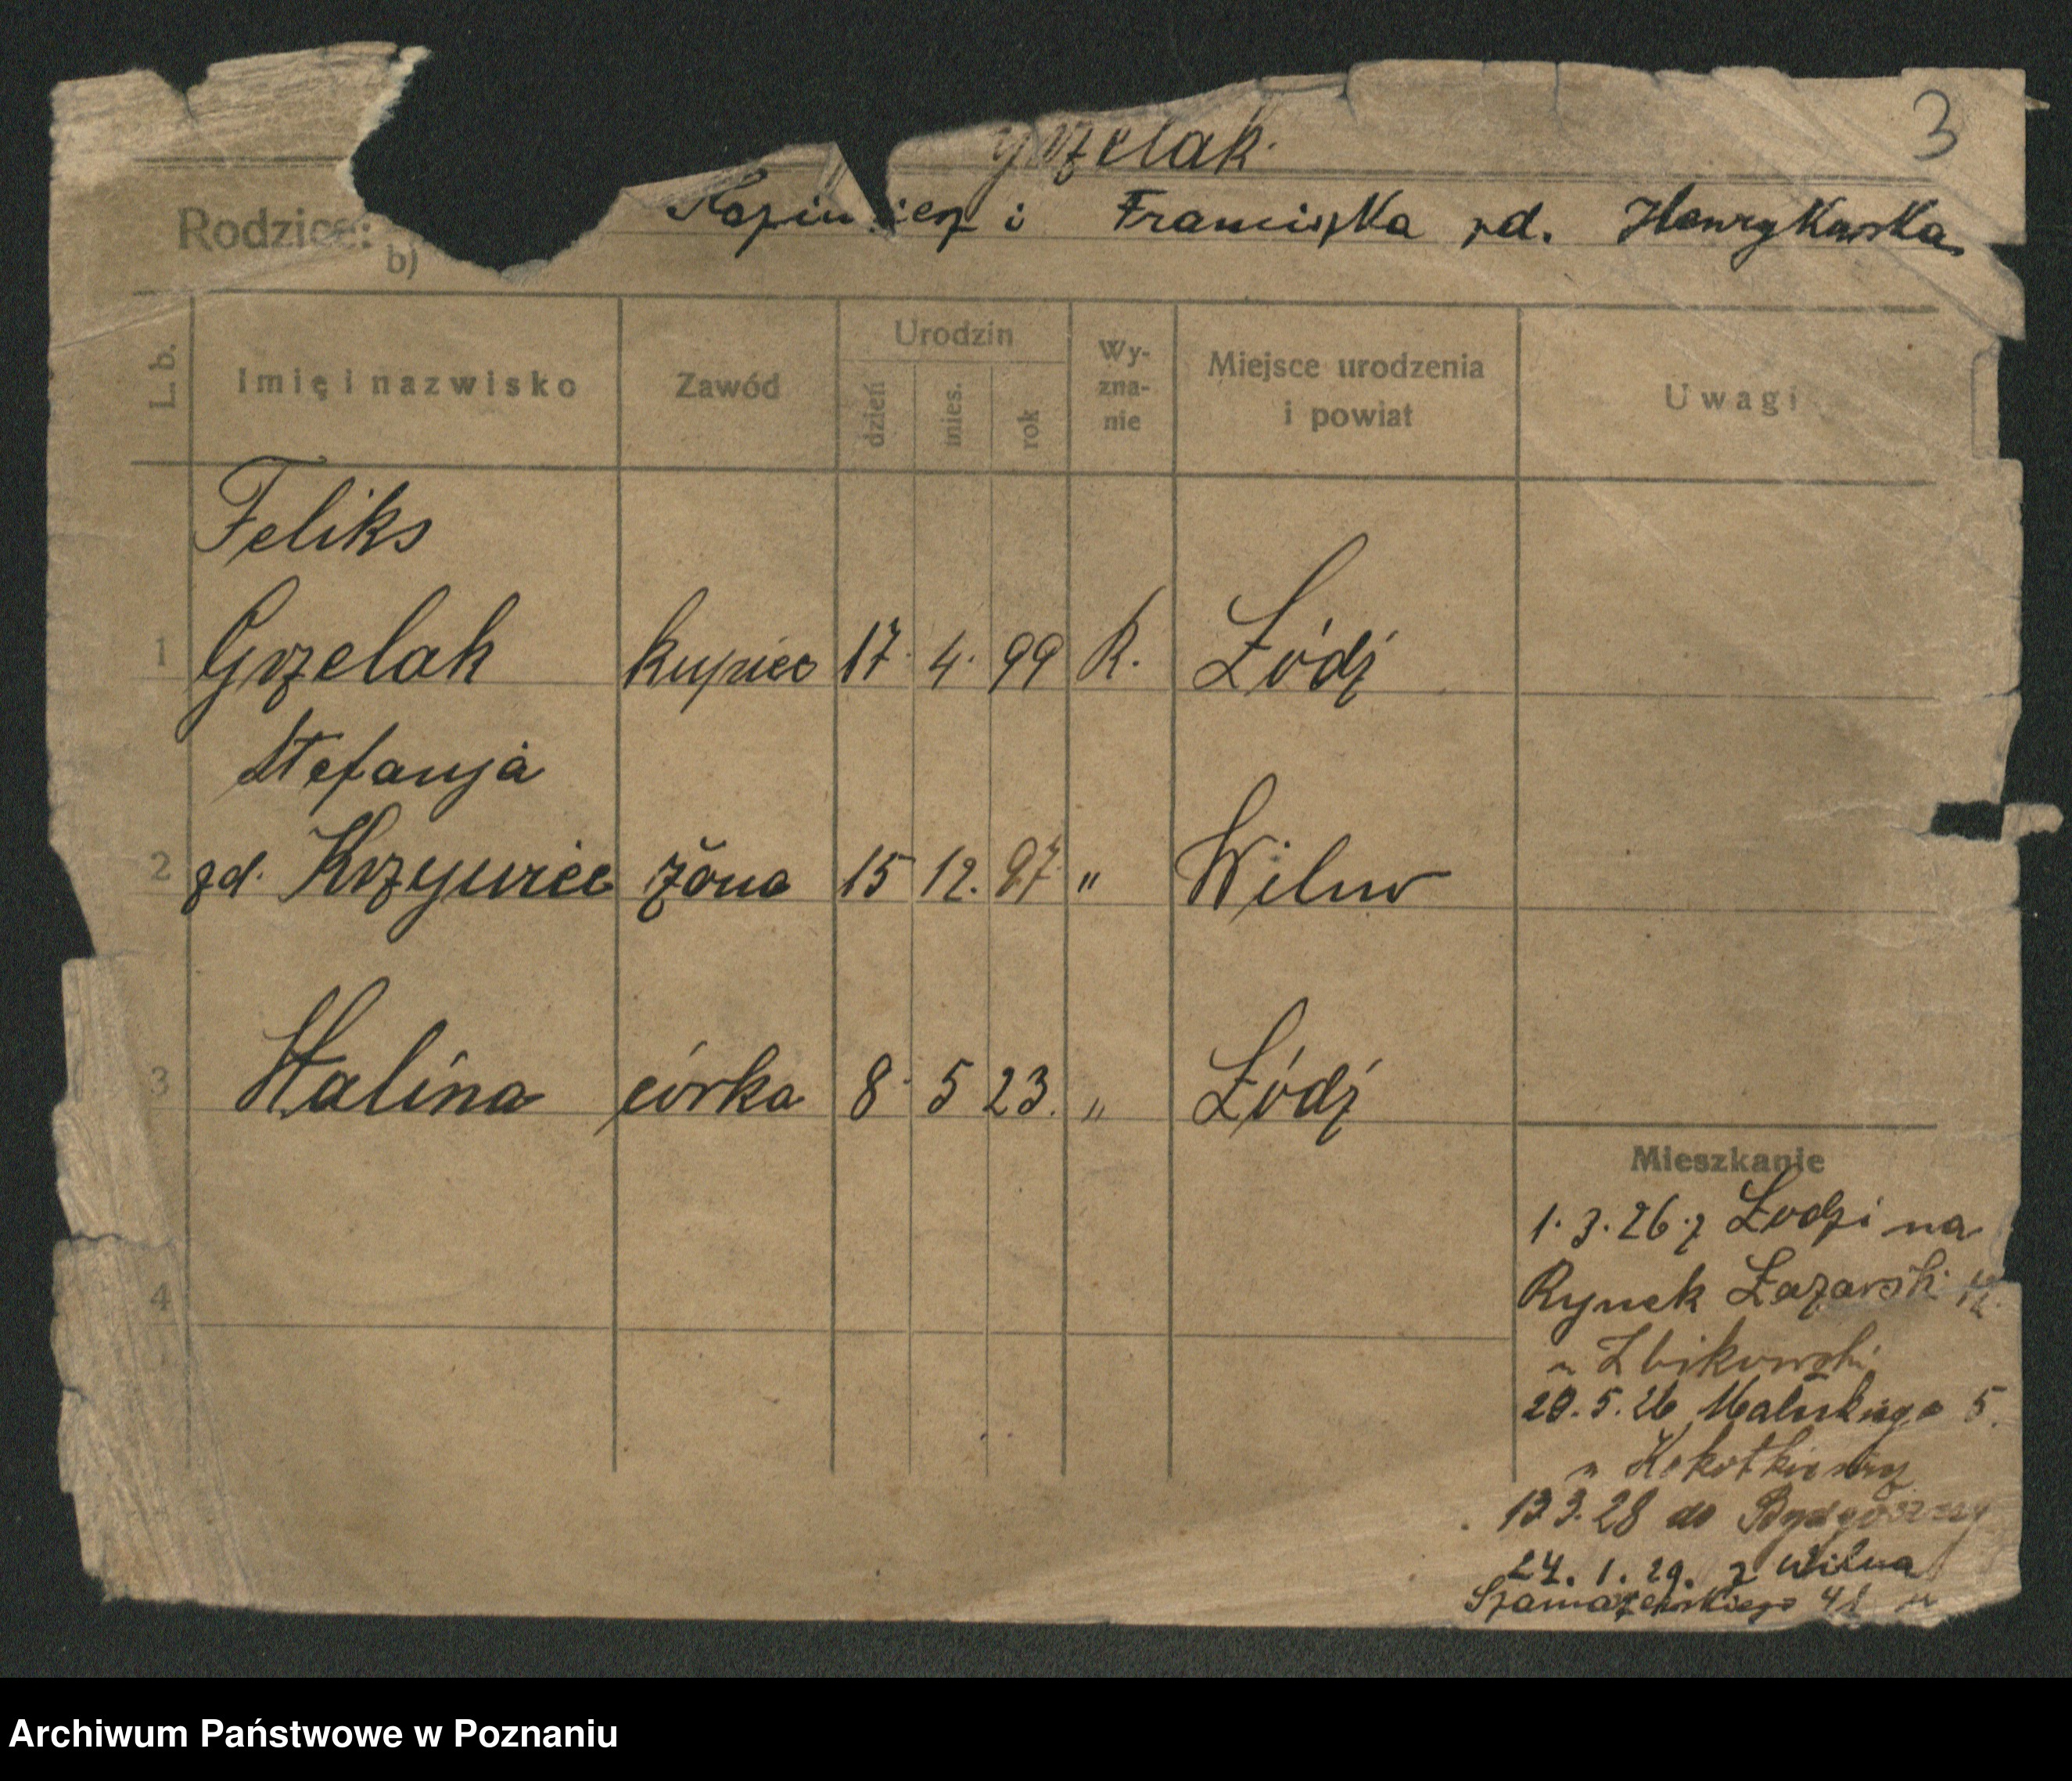 3
Grzelak
Rodzice:
Kazimierz i Franciszka zd. Henrykowska
b)
L. b.
Imię i nazwisko
Zawód
Urodzin
dzień
mies.
rok
Wy-
zna-
nie
Miejsce urodzenia
i powiat
Uwagi
Feliks
1 Grzelak kupiec 17. 4. 99 R. Łódź
Stefanja
2 zd. Krzywiec żona 15 12. 97 " Wilno
3 Halina córka 8. 5 23. " Łódź
Mieszkanie
1.3.26. z Łodzi na
4
Rynek Łazarski 12.
u Zbikowski
20.5.26 Małeckiego 5.
u
13.3.28 do Bydgoszczy
24.1.29. z Wilna
Szamarzewskiego
Archiwum Państwowe w Poznaniu